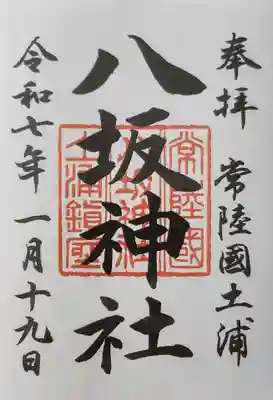 奉拝 常陸國土浦
八坂神社
常陸國
八坂神社
土浦鎮座
令和七年 一月十九日